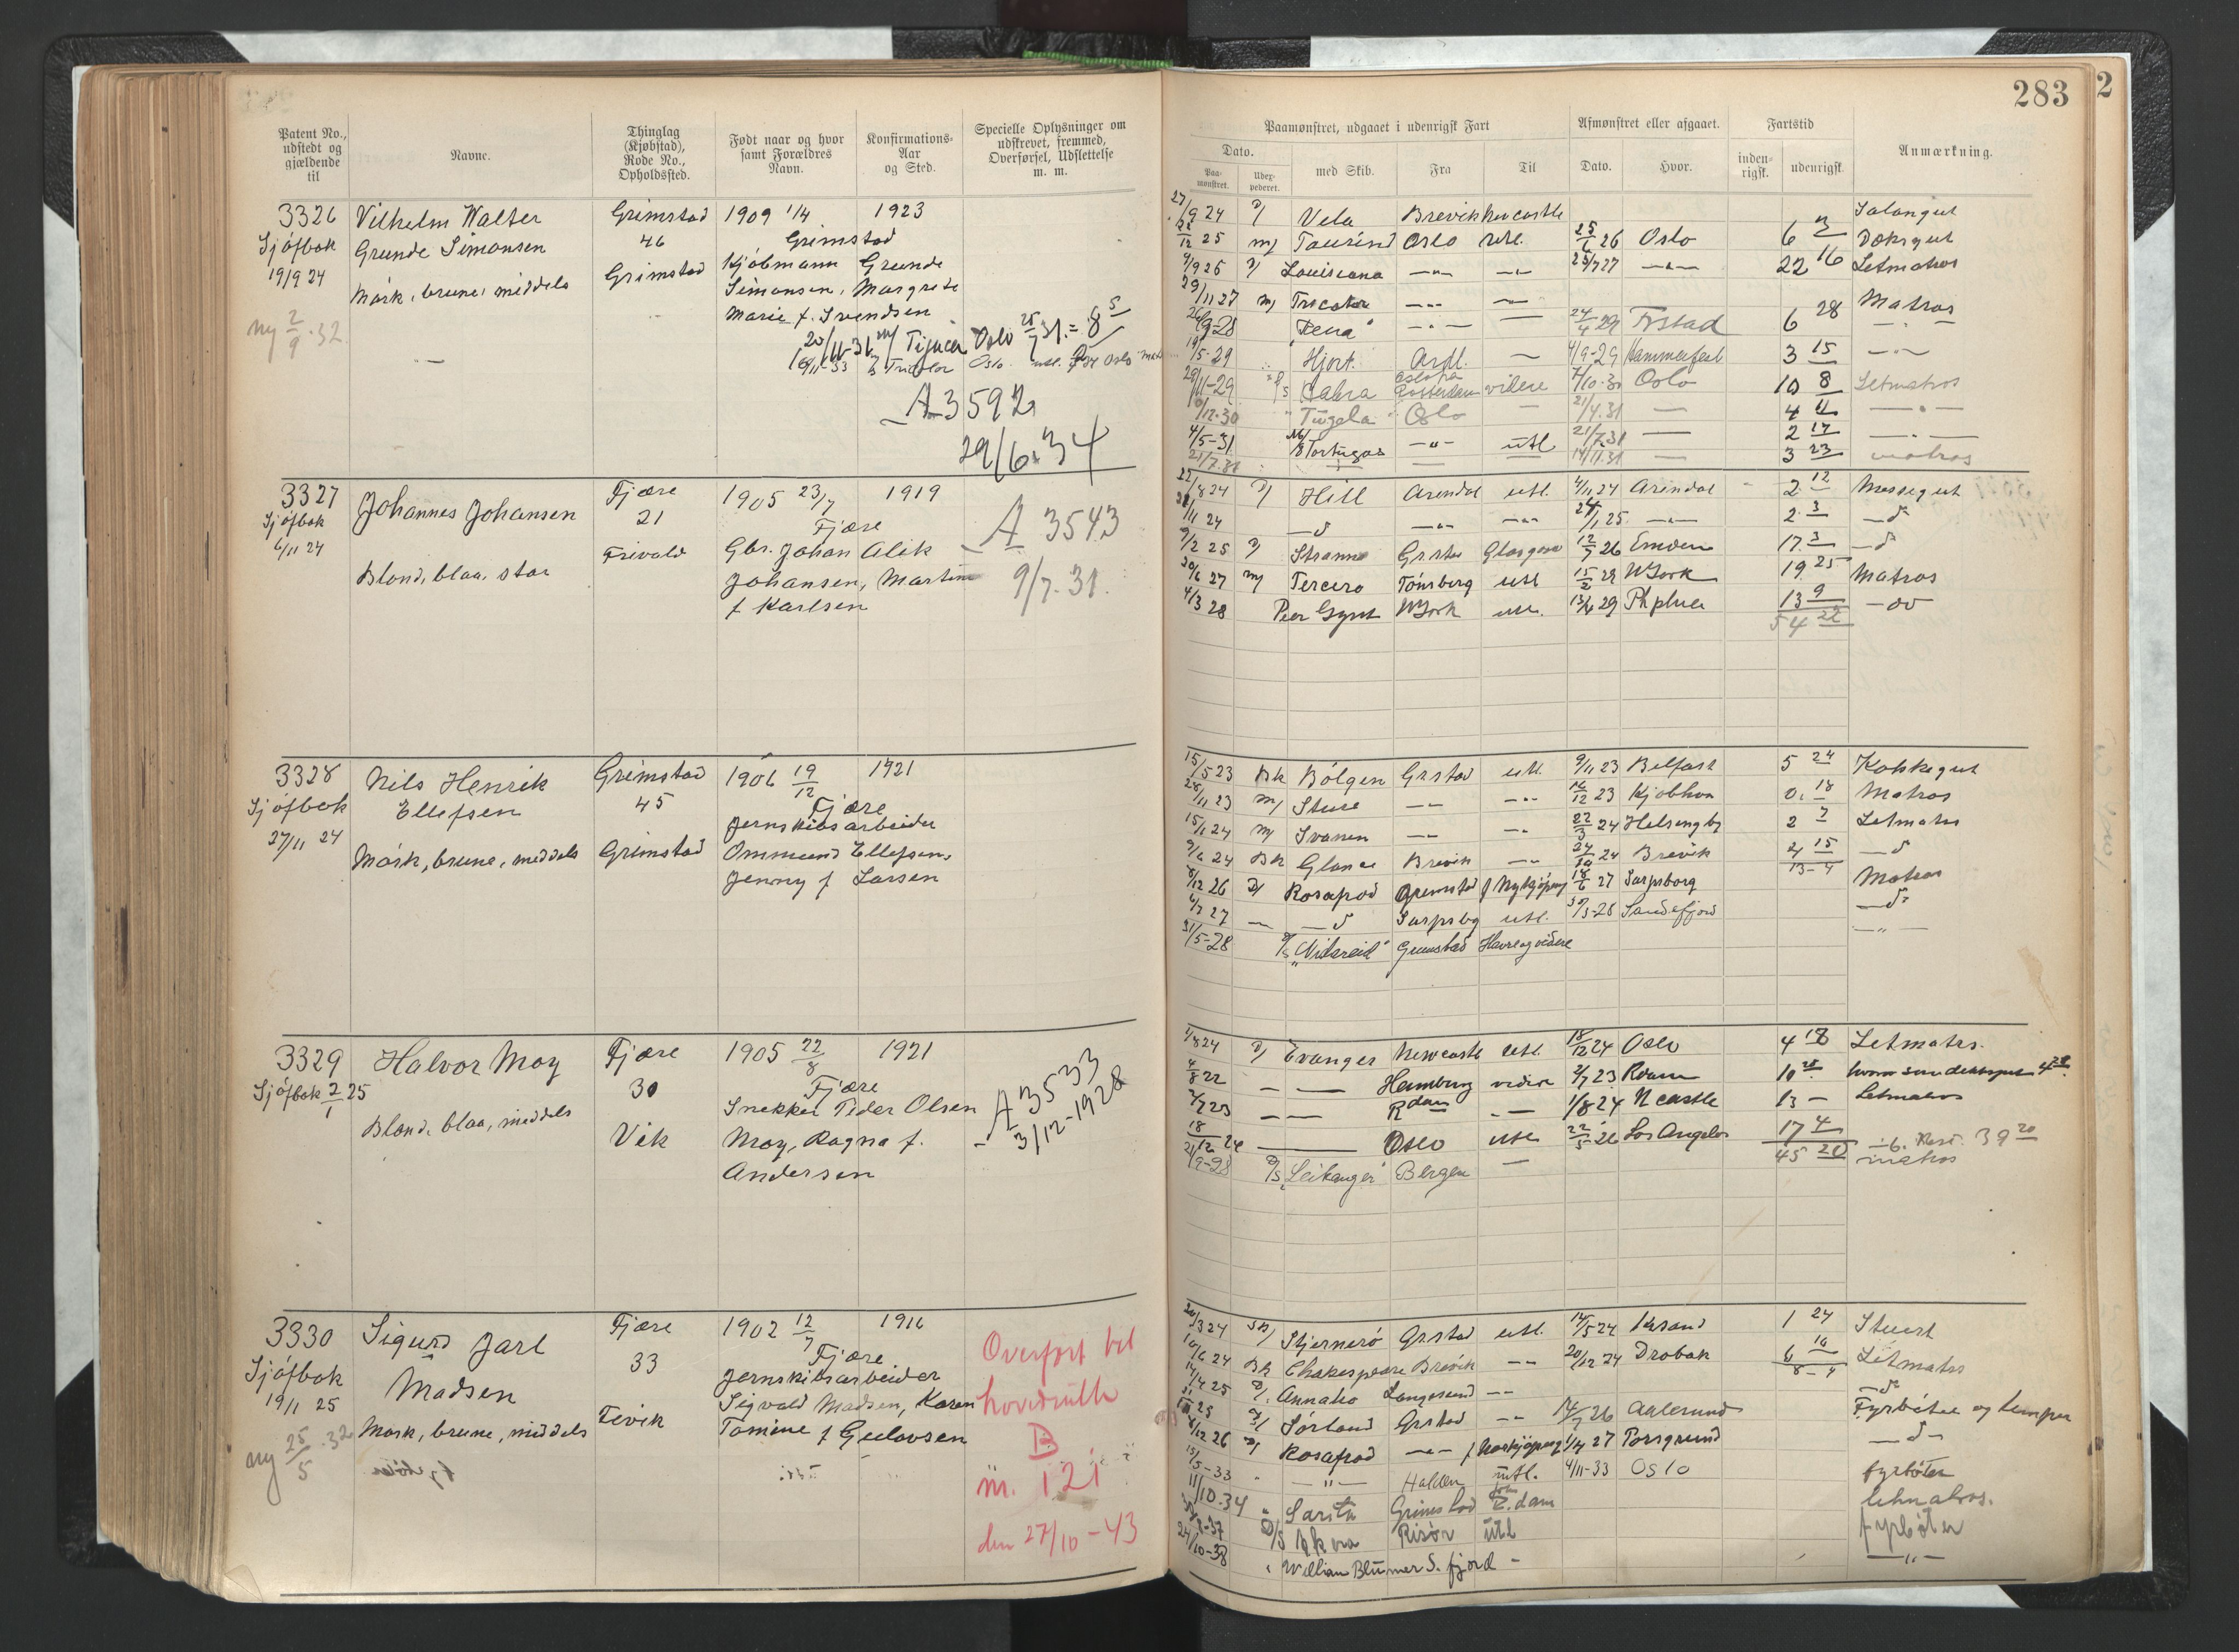 283
2
Patent No., udstedt og gjældende til
Navne.
Thinglag (Kjøbstad), Rode No., Opholdssted.
Født naar og hvor samt Forældres Navn.
Konfirmations-Aar og Sted.
Specielle Oplysninger om udskrevet, fremmed, Overførsel, Udslettelse m. m.
Paamønstret, udgaaet i udenrigsk Fart
Afmønstret eller afgaaet.
Fartstid
Anmærkning.
Dato.
Paa-mønstret.
Udex-pederet.
med Skib.
Fra
Til
Dato.
Hvor.
inden-rigsk.
udenrigsk.
3326 Vilhelm Walter Grimstad 1909 1/4 1923
Sjøfbok Grunde Simonsen 46 Grimstad
19/9 24 Mørk, brune, middels Grimstad Kjøbmann Grunde
Simonsen, Margrete
Marie f. Svendsen
ny 2/9 .32
A 3592
29/6.34
27/9 24 D/ Vela Brevik Newcastle Salongut
12 25 M/ Taurind Oslo utl. 25/6 26 Oslo 6 3 Dæksgut
9/9 26 D/ Louisiana -"- -"- 25/7 27 -"- 22 16 Letmatros
29/11 27 M/ Tricolor -"- Matros
26/9-28 "Pena" -"- 24/4 29 Frstad 6 28 -"-
19/5-29 Hjort. Ardl. 4/9-29 Hammerfest 3 15 -"-
29/11-29 Rotterdam videre 4/10-30 Oslo 10 8 Letmatros
/12-30 "Tugela" Oslo 21/4.31 4 11 -"-
4/5-31 Tortugas -"- utl 21/7.31 2 17 -"-
21/7.31 14/11.31 3 23 matros
3327 Johannes Johansen Fjære 1905 23/7 1919
Sjøfbok 21 Fjære
6/11 24 Blond, blaa, stor Frivold Gbr. Johan Alik
Johansen, Martine
f Karlsen
A 3543
9/7.31.
22/8 24 D/ Hill Arendal utl. 4/11 24 Arendal 2 12 Messegut
/11 24 -d -"- -"- 24/1 25 -"- 2 3 -d
9/2 25 D/ Strømme Grstad Glasgow 12/7 26 Emden 17 3 -d
20/6 27 M/ Tercero Tønsberg utl 15/2 28 NYork 19 25 Matros
4/3 28 Peer Gynt NYork utl. 13/4 29 Phphia 13 9 -do
54 22
3328 Nils Henrik Grimstad 1906 19/12 1921
Sjøfbok Ellefsen 45 Fjære
27/11 24 Mørk, brune, middels Grimstad Jernskibsarbeider
Ommund Ellefsen,
Jenny f Larsen
15/5 23 Bk Bølgen Grstad utl. 9/11 23 Belfast 5 24 Kokkegut
28/11 23 M/ Sture -"- -"- 16/12 23 Kjøbhvn 0. 18 Matros
15/1 24 M/ Svanen -"- -"- 22/3 24 Helsingby 2 7 Letmatros
9/6 24 Bk Glance Brevik -"- 24/10 24 Brevik 4 15 -d
13-4
8/12 26 D/ Rosafred Grimstad f Nykjøping 18/6 27 Sarpsborg Matros
4/7 27 -d Sarpsbg utl. 30/3-28 Sandefjord -d-
31/5-28 D/S "Nidareid" Grimstad Havre og videre -"-
3329 Halvor Moy Fjære 1905 22/8 1921
Sjøfbok 2/1 25 30 Fjære
Blond, blaa, middels Vik Snekker Peder Olsen
Moy, Ragna f.
Andersen
A 3533
3/12-1928
1/8 24 D/ Evanger Newcastle utl. 18/12 24 Oslo 4 18 Letmatrs.
4/8 22 Hamburg videre 2/7 23 Rdam 10 28
2/7 23 Rdam 1/8 24 Ncastle 13 - Letmatros
18/12 24 Oslo utl 22/5-26 Los Angelos 17 4
45 20
39 20
21/9-28 D/S "Leikanger" Bergen - matros
3330 Sigurd Jarl Fjære 1902 12/7 1916
Sjøfbok Madsen 33 Fjære
19/11 25 Mørk, brune, middels Fevik Jernskibsarbeider
Sigvald Madsen, Karen
Tomine f Gulovsen
ny 25/5 .32
Overført til
hovedrulle
B
nr. 121
den 27/10-43
20/3 24 Stjernerø Grstad utl. 14/5 24 Krsand 1 24 Stuert
10/6 24 Bk Chakespeare Brevik -"- 20/12 24 Drøbak 6 10 Letmatrs
8-4
14/4 25 D/ Annaho Langesund -"- -d-
25 D/ Sørland Grstad -"- 14/7 26 Aalesund Fyrbøter og lemper
/12 26 D/ Rosafred -"- f Norkjøping 1/4 27 Porsgrund -d-
13/5-33 -"- Halden utl. 4/11-33 Oslo fyrbøter
11/10-34 Sarita Grimstad R.dam letmatros.
-37 D/S Risør utl fyrbøter
24/10-38 William Blumer S.fjord - -"-